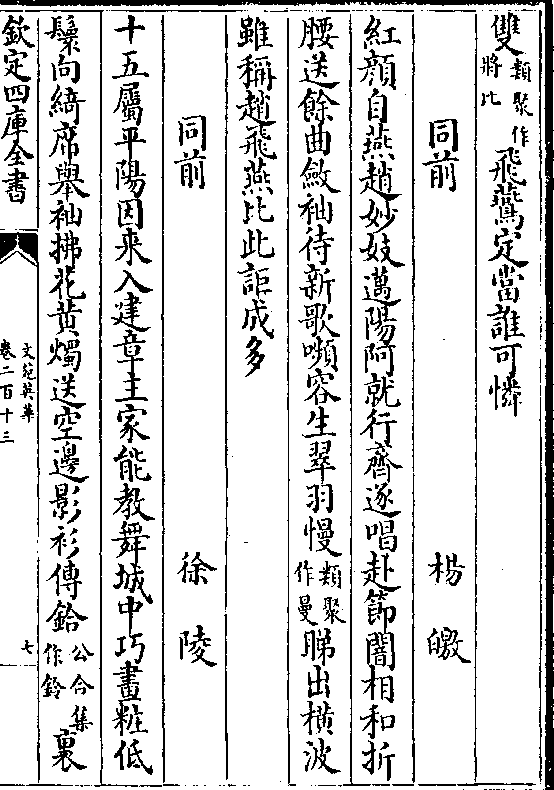 雙類聚作將比飛鷰定當誰可憐
同前 楊皦
紅顔自燕趙妙妓邁陽阿就行齊逐唱赴節闇相和折
腰送餘曲斂袖待新歌嚬容生翠羽慢類聚作曼睇出横波
雖稱趙飛燕比此詎成多
同前 徐陵
十五屬平陽因來入建章主家能教舞城中巧畫粧低
鬟向綺席舉袖拂花黄燭送空邊影衫傳鉿公合集作鈴裏
欽定四庫全書 文苑英華 卷二百十三 七